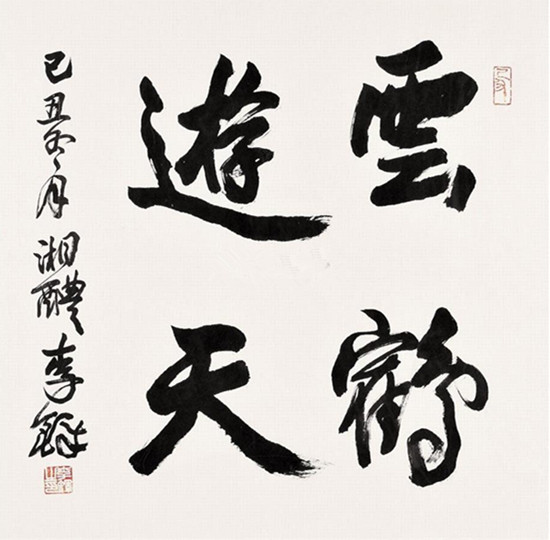 雲鶴
遊天
己丑冬月湘醴李鐸